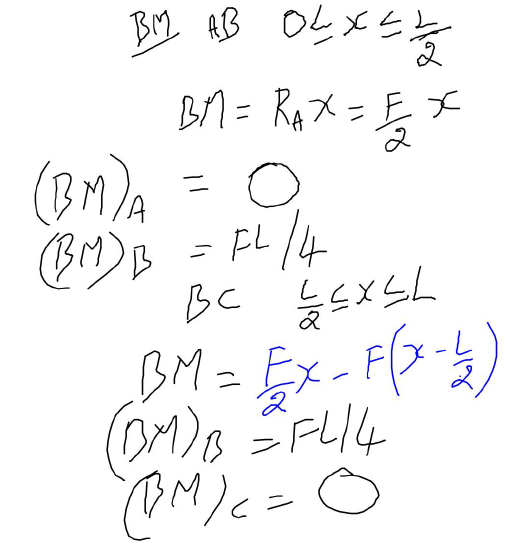 BM AB 0 ≤ x ≤ L/2
BM = R_A x = F/2 x
(BM)_A = 0
(BM)_B = FL/4
BC L/2 ≤ x ≤ L
BM = F/2 x - F(x - L/2)
(BM)_B = FL/4
(BM)_C = 0